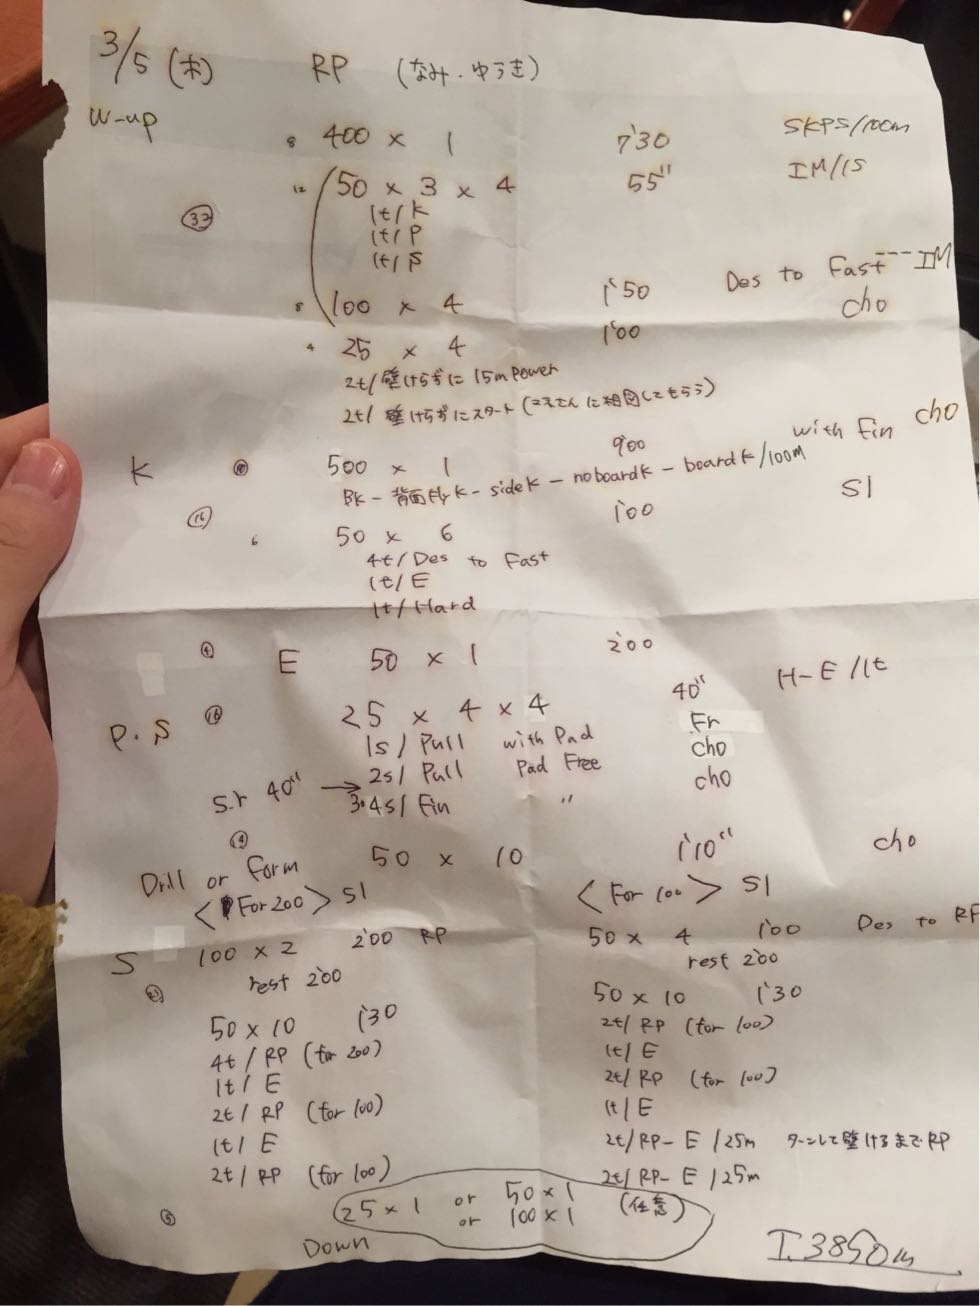 3/5 (木) RP (なみ・ゆうき)
W-up
8 400 × 1 7'30 SKPS/100m
12 50 × 3 × 4 55" IM/1S
1t/K
㉜ 1t/P
1t/S
8 100 × 4 1'50 Des to Fast---IM
4 25 × 4 1'00 cho
2t/壁けらずに 15m Power
2t/ 壁けらずにスタート (に相図してもらう)
K ⑩ 500 × 1 9'00 with Fin cho
BK - 背面Fly K - side K - no board K - board K/100M
⑯ 6 50 × 6 1'00 S1
4t/Des to Fast
1t/E
1t/Hard
④ E 50 × 1 2'00
P.S ⑯ 25 × 4 × 4 40" H-E/1t
1s/Pull with Pad Fr
2s/Pull Pad Free cho
S.r 40" → 3.4s/Fin " cho
50 × 10 1'10" cho
Drill or Form
<For 200> S1
S 100 × 2 2'00 RP
rest 2'00
㉑
50 × 10 1'30
4t/RP (for 200)
1t/E
2t/RP (for 100)
1t/E
2t/RP (for 100)
<For 100> S1
50 × 4 1'00 Des to RP
rest 2'00
50 × 10 1'30
2t/RP (for 100)
1t/E
2t/RP (for 100)
1t/E
2t/RP-E/25m ターンして壁けるまでRP
2t/RP-E/25m
⑤ 25 × 1 or 50 × 1 (任意)
or 100 × 1
Down
T.3850m